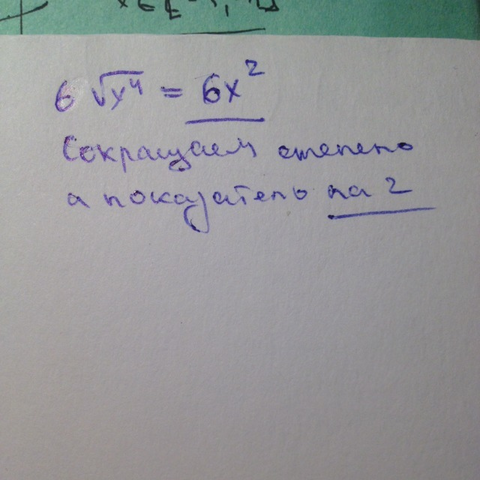 6 √x⁴ = 6x²
Сокращаем степень
а показатель на 2